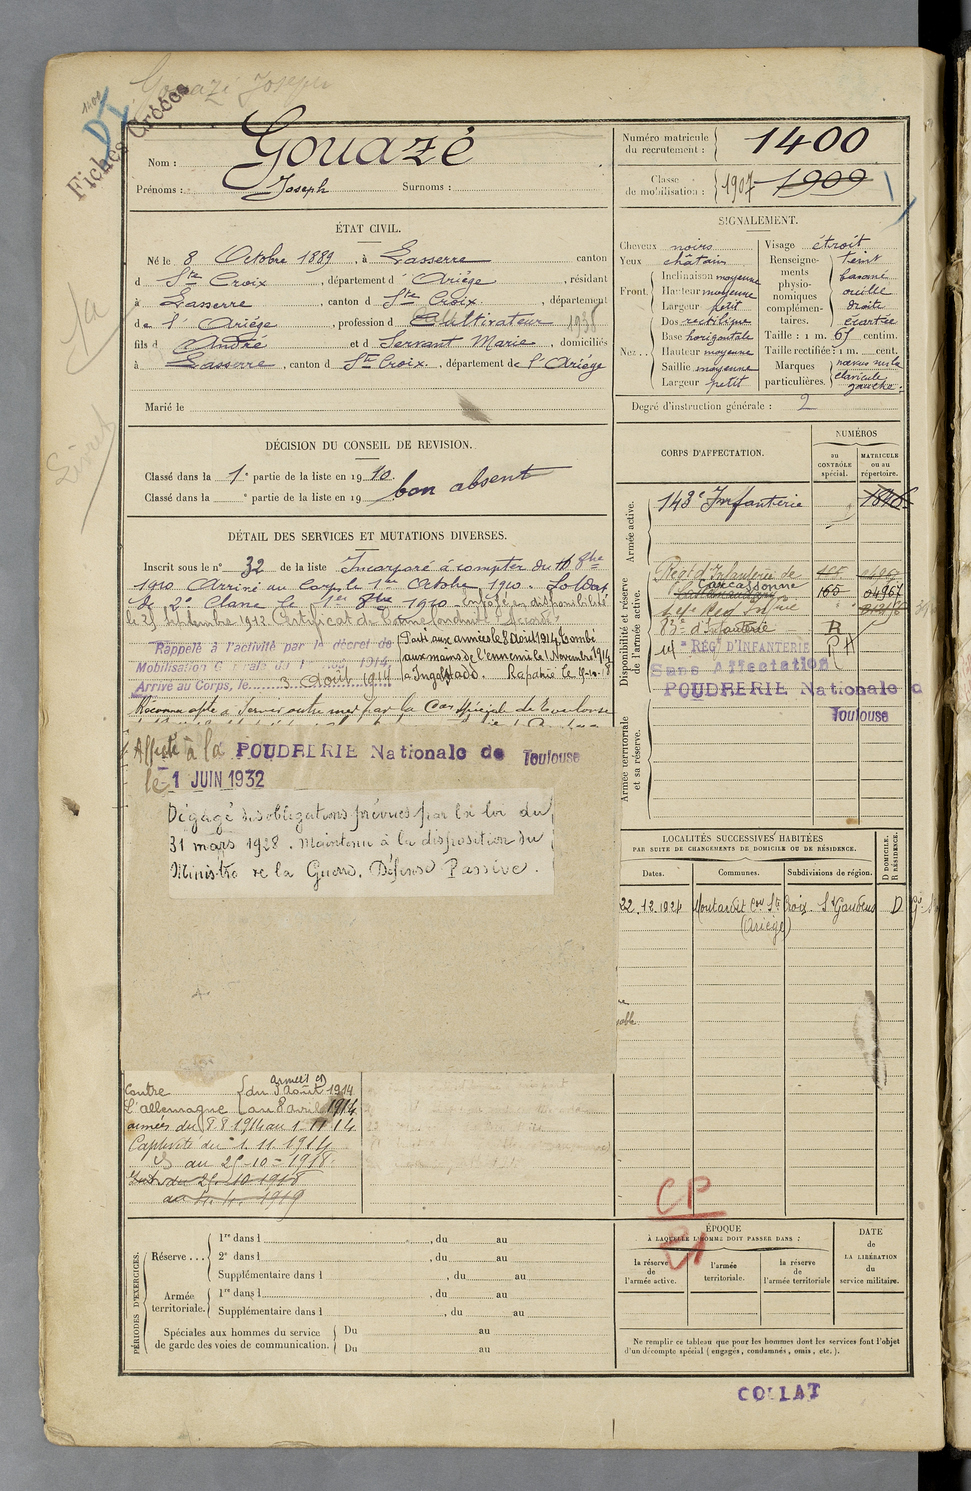 Gouazé Joseph
Fiches Croisées
Nom : Gouazé
Prénoms : Joseph Surnoms :
Numéro matricule du recrutement : 1400
Classe de mobilisation : 1907 1909
ÉTAT CIVIL.
Né le 8 Octobre 1889, à Lasserre canton
d Ste Croix, département d' Ariége, résidant
à Lasserre, canton d Ste Croix, département
de l' Ariége, profession d Cultivateur
fils d André et d Servant Marie, domiciliés
à Lasserre, canton d Ste Croix, département de l'Ariége
Marié le
SIGNALEMENT.
Cheveux noirs
Yeux châtain
Front. Inclinaison moyenne
Hauteur moyenne
Largeur petit
Nez... Dos rectiligne
Base horizontale
Hauteur moyenne
Saillie moyenne
Largeur petit
Visage étroit
Renseignements physionomiques complémentaires. teint basané oreille droite écartée
Taille : 1 m. 65 centim.
Taille rectifiée : 1 m. cent.
Marques particulières. sur la clavicule gauche
Degré d'instruction générale : 2
DÉCISION DU CONSEIL DE REVISION.
Classé dans la 1e partie de la liste en 1910.
Classé dans la e partie de la liste en 19
bon absent
DÉTAIL DES SERVICES ET MUTATIONS DIVERSES.
Inscrit sous le n° 32 de la liste Incorporé à compter du 1 8bre
1910 Arrivé au Corps le 1er Octobre 1910. Soldat
de 2e Classe le 1er 8bre 1910. Envoyé en disponibilité
le 25 septembre 1912. Certificat de bonne conduite Accordé.
Rappelé à l'activité par le décret de
Mobilisation Générale du 1er Août 1914,
Arrivé au Corps, le 3 Août 1914
Parti aux armées le 8 Août 1914. Tombé
aux mains de l'ennemi le 1 Novembre 1914
à Ingolstadt. Rapatrié le
Reconnu apte à servir outre mer par la Con spéciale de Toulouse
Affecté à la POUDRERIE Nationale de Toulouse
le 1 JUIN 1932
Dégagé des obligations prévues par la loi du
31 mars 1928. Maintenu à la disposition du
Ministre de la Guerre. Défense Passive.
Contre l'allemagne
armées du 8 8 1914 au 1. 11 14
Captivité du 1. 11. 1914
au 25-10-1918.
CORPS D'AFFECTATION.
NUMÉROS
au CONTRÔLE spécial.
MATRICULE ou au répertoire.
Armée active.
143e Infanterie
Disponibilité et réserve de l'armée active.
Régt d'Infanterie de
Carcassonne
83e d'Infanterie R
14e RÉGt D'INFANTERIE
Sans Affectation
POUDRERIE Nationale d
Toulouse
Armée territoriale et sa réserve.
LOCALITÉS SUCCESSIVES HABITÉES
PAR SUITE DE CHANGEMENTS DE DOMICILE OU DE RÉSIDENCE.
Dates. Communes. Subdivisions de région. D DOMICILE. R RÉSIDENCE.
22.12.1924 Montardit Con Ste Croix. St Gaudens D
(Ariège)
CP
21
PÉRIODES D'EXERCICES.
Réserve... 1re dans l , du au
2e dans l , du au
Supplémentaire dans l , du au
Armée territoriale. 1re dans l , du au
Supplémentaire dans l , du au
Spéciales aux hommes du service de garde des voies de communication. Du au
Du au
ÉPOQUE
À LAQUELLE L'HOMME DOIT PASSER DANS :
la réserve de l'armée active.
l'armée territoriale.
la réserve de l'armée territoriale
DATE de LA LIBÉRATION du service militaire.
Ne remplir ce tableau que pour les hommes dont les services font l'objet
d'un décompte spécial (engagés, condamnés, omis, etc.).
COLLAT